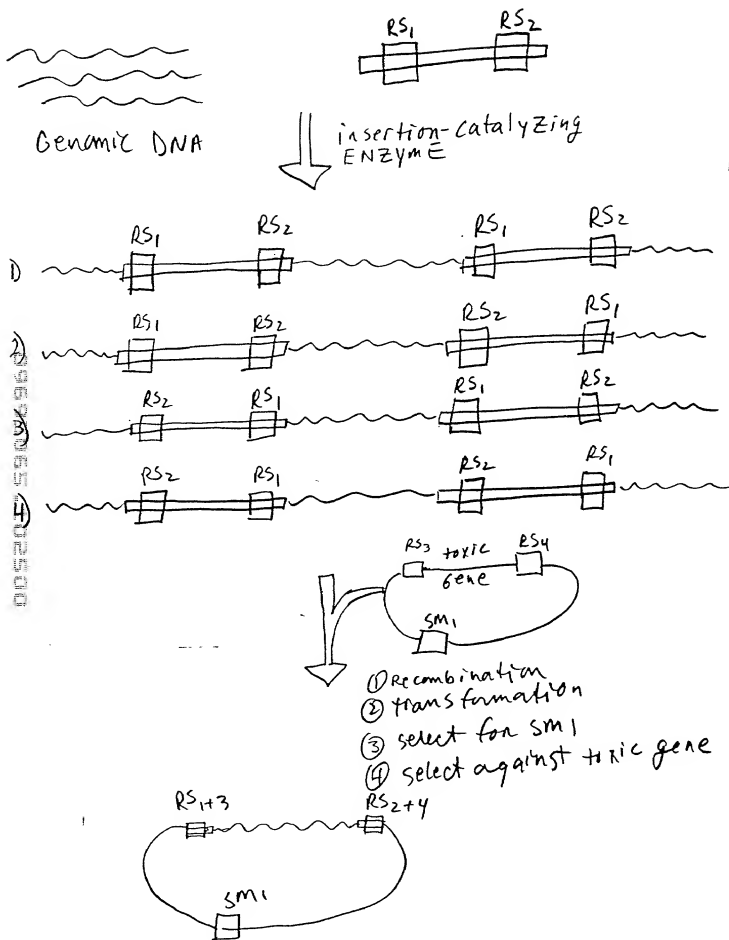 RS1 RS2
Genomic DNA
insertion-catalyzing
ENZYME
RS1 RS2 RS1 RS2
1)
RS1 RS2 RS2 RS1
2)
RS2 RS1 RS1 RS2
3)
RS2 RS1 RS2 RS1
4)
RS3 toxic RS4
gene
SM1
① Recombination
② transformation
③ select for SM1
④ select against toxic gene
RS1+3 RS2+4
SM1